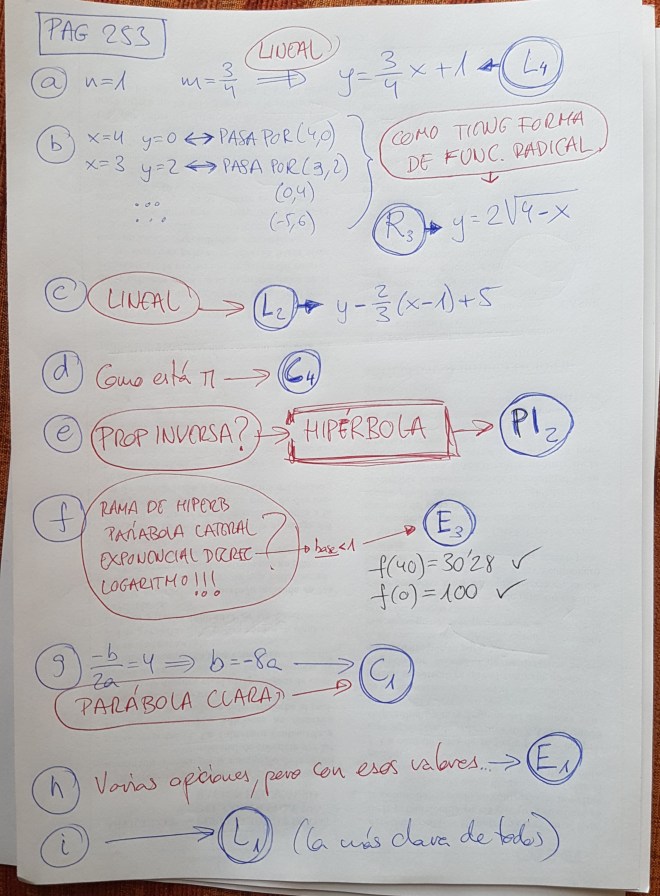 PAG 253
LINEAL
a n=1 m=3/4 ⇒ y=3/4 x+1 ← L4
b x=4 y=0 ↔ PASA POR (4,0)
x=3 y=2 ↔ PASA POR (3,2)
... (0,4)
... (-5,6)
COMO TIENE FORMA
DE FUNC. RADICAL
R3 → y=2√4-x
c LINEAL → L2 → y-2/3(x-1)+5
d Como está π → C4
e PROP INVERSA? → HIPÉRBOLA → PI2
f RAMA DE HIPERB
PARÁBOLA LATERAL
EXPONENCIAL DECREC
LOGARITMO!!! ? → base<1 → E3
f(40)=30'28 ✓
f(0)=100 ✓
g -b/2a=4 ⇒ b=-8a → C1
PARÁBOLA CLARA →
h Varias opciones, pero con esos valores... → E1
i → L1 (la más clara de todas)